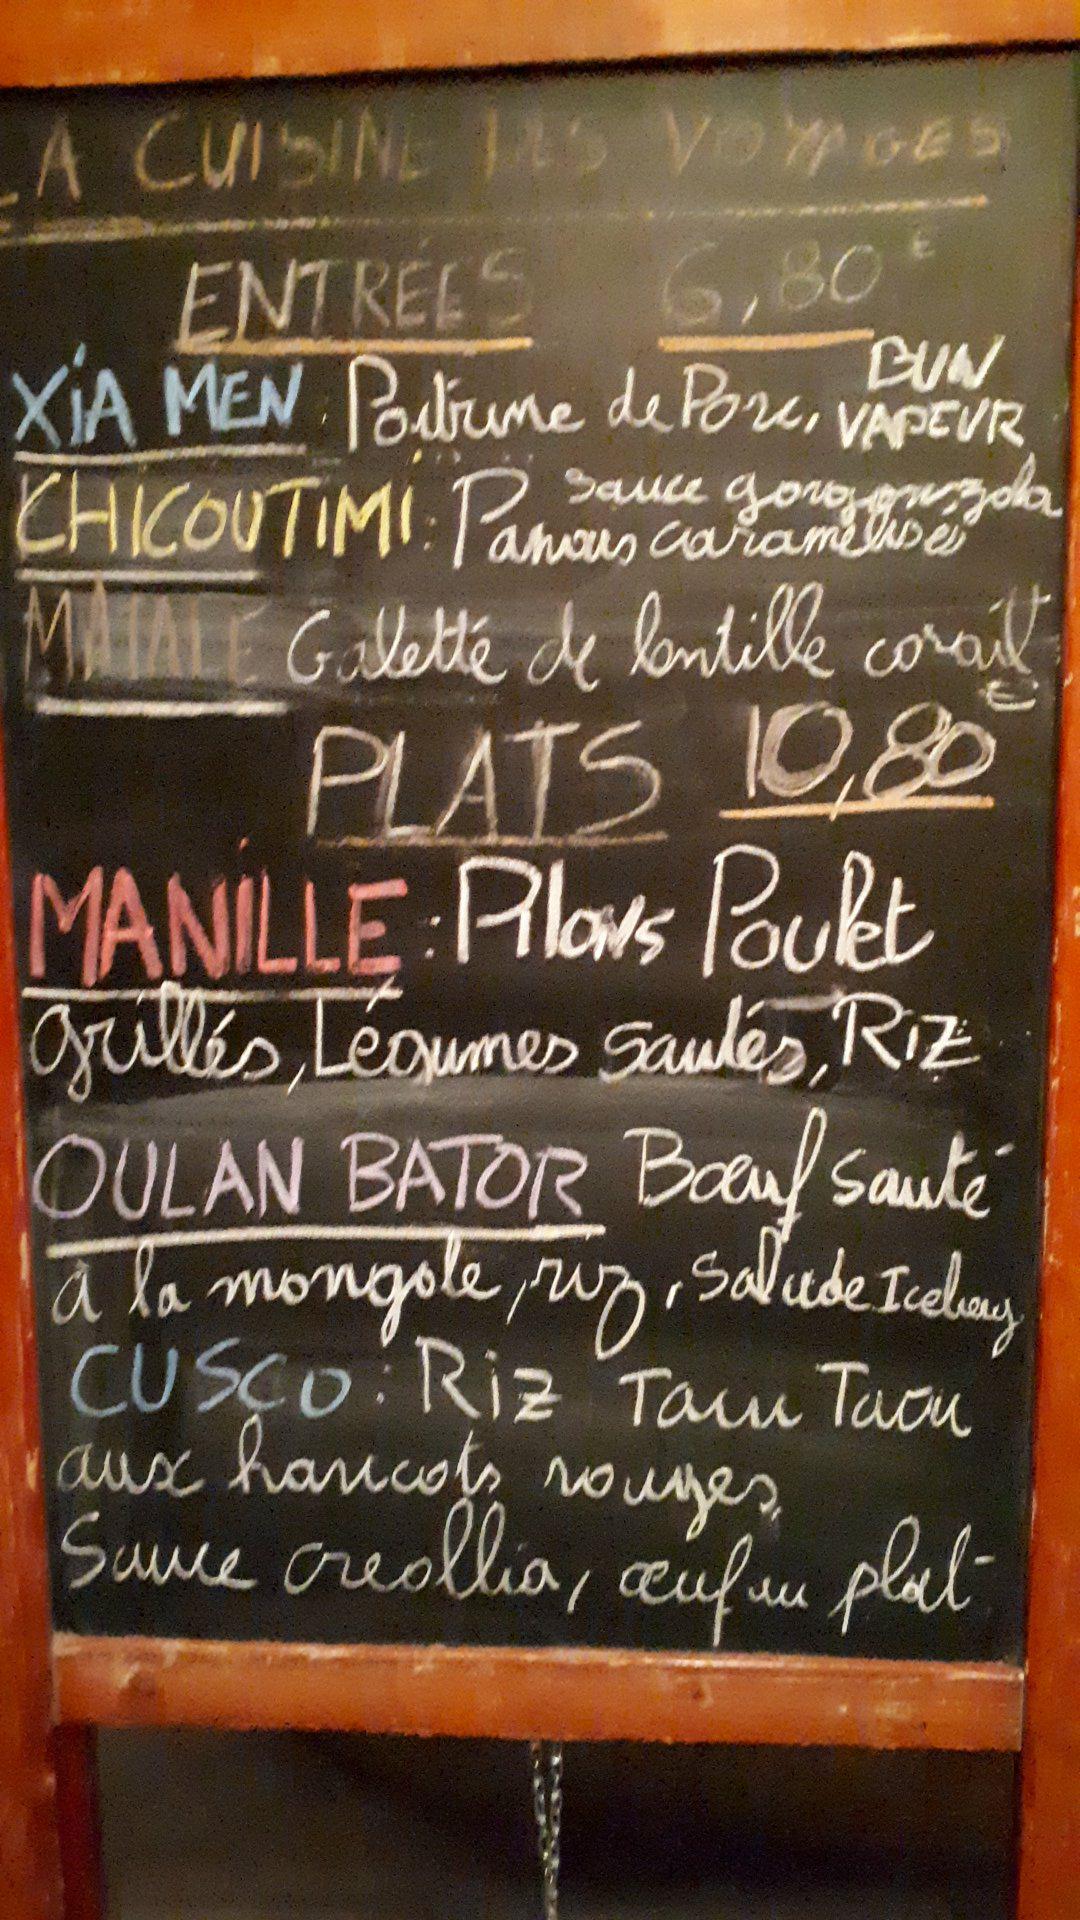 LA CUISINE DES VOYAGES
ENTRÉES 6,80€
XIA MEN : Poitrine de Porc, BUN VAPEUR
CHICOUTIMI : Panais caramélisé sauce gorgonzola
MATALE Galette de lentille corail
PLATS 10,80€
MANILLE : Pilons Poulet
grillés, Légumes sautés, Riz
OULAN BATOR Bœuf sauté
à la mongole, riz, Salade Iceberg
CUSCO : Riz Tacu Tacu
aux haricots rouges,
Sauce creollia, œuf au plat